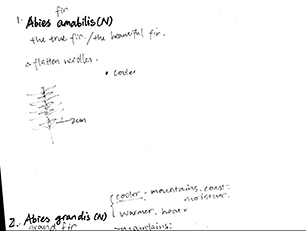 fir
1. Abies amabilis (N)
the true fir. / the beautiful fir.
△ flatten needles.
• cooler
2cm
{ cooler. mountains. coast.
moisture.
warmer. heat
2. Abies grandis (N)
grand fir
mountains.